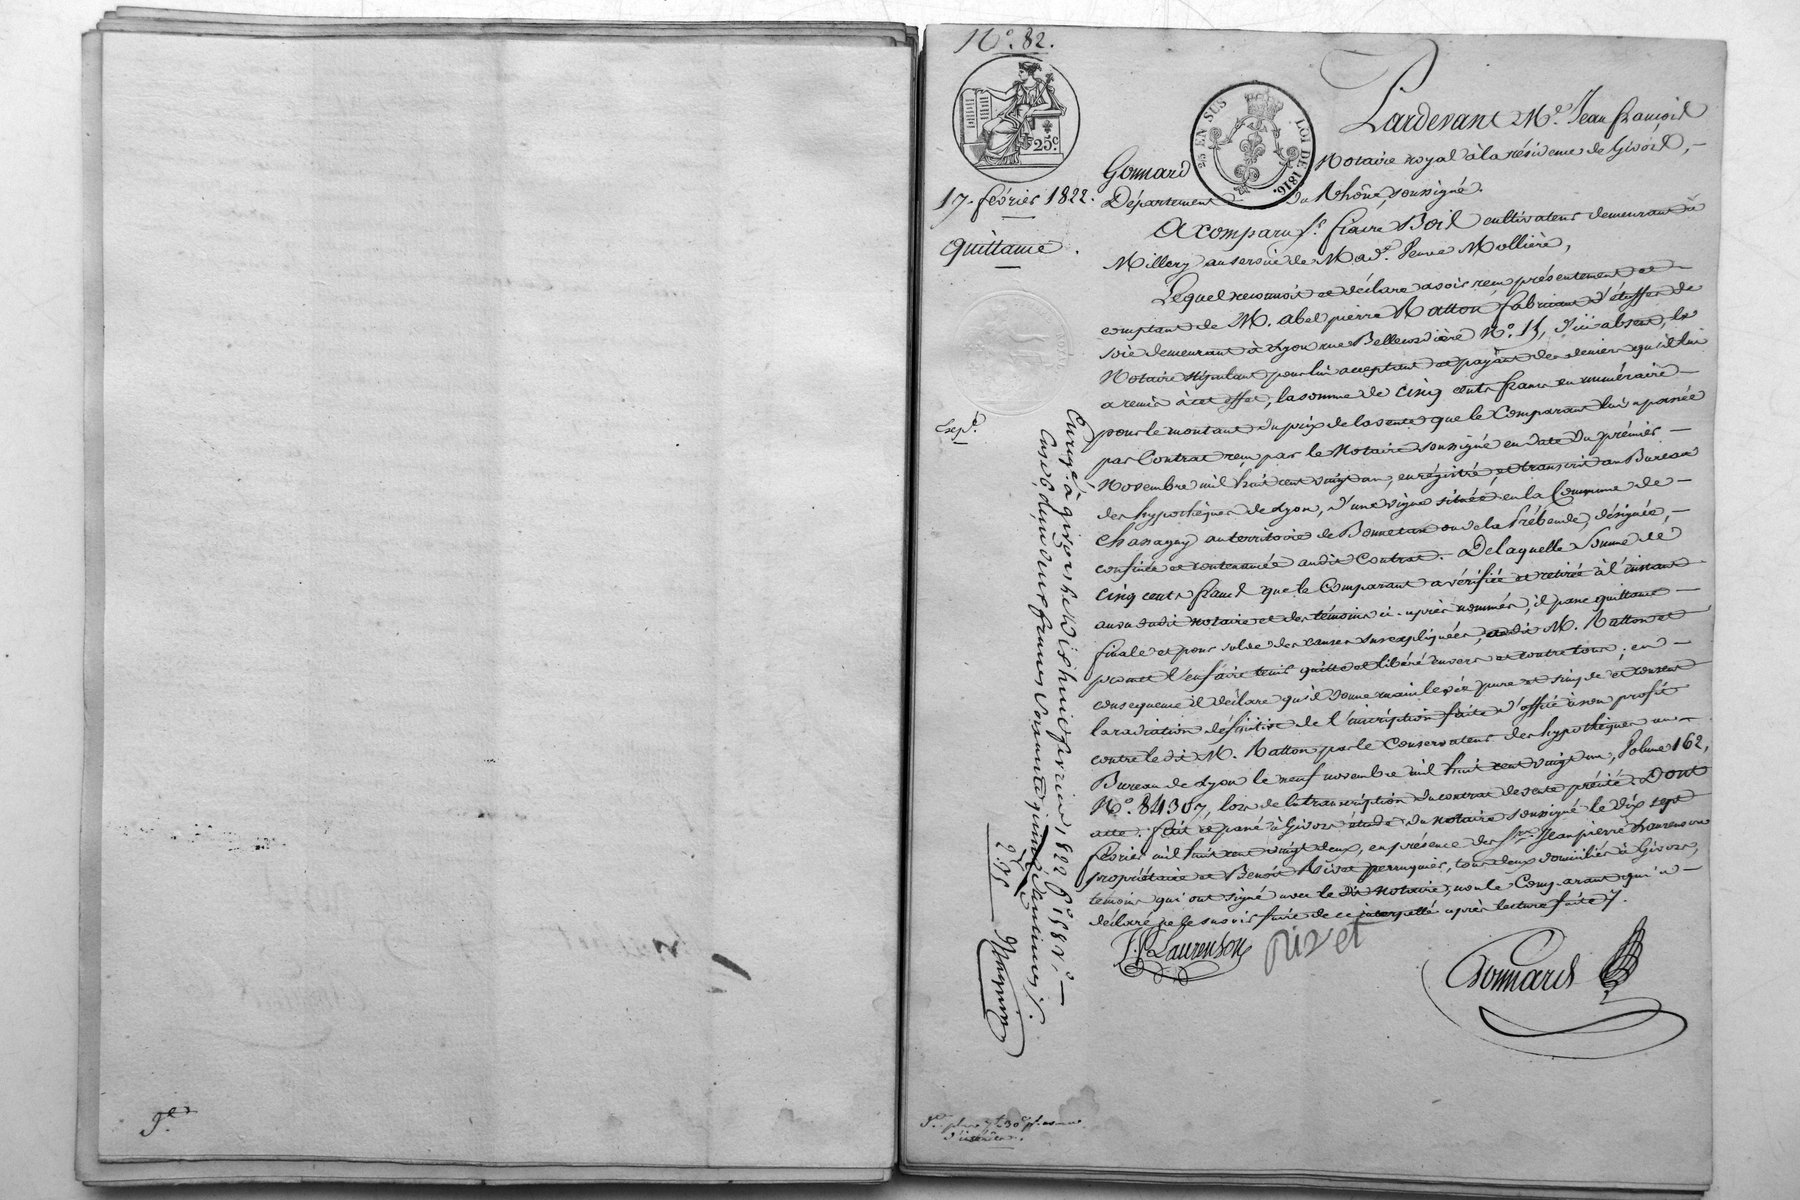 N.º 82.
25 c.
25 EN SUS LOI DE 1816.
17. février 1822.
Quittance.
Expé.
Pardevant Mᵉ. Jean françois
Gonnard Notaire royal à la résidence de Givors,
Département du Rhône, soussigné.
A comparu Sʳ. Claire Boil cultivateur demeurant à
Millery au service de Madᵉ. Veuve Mollière,
Lequel reconnoit et déclare avoir reçu présentement et
comptant de M. abel pierre Ratton fabricant d'étoffes de
soie demeurant à Lyon rue Bellecordière N.º 15, d'ici absent, le
Notaire stipulant pour lui acceptant et payant des deniers qu'il lui
a remis à cet effet, la somme de cinq cents francs en numéraire
pour le montant du prix de la vente que le Comparant lui a passée
par Contrat reçu par le Notaire soussigné en date du premier
Novembre mil huit cent vingt un, enrégistré, et transcrit au Bureau
des hypothèques de Lyon, d'une vigne située en la Commune de
Chassagny au territoire de Bonnetan ou de la Prébende, désignée,
confinée et contenancée audit Contrat. De laquelle Somme de
cinq cents francs que le Comparant a vérifiée et retirée à l'instant
au vu dudit notaire et des témoins ci-après nommés, il passe quittance
finale et pour solde des causes susexpliquées, audit M. Ratton et
promet l'en faire tenir quitte et libéré envers et contre tous; en
conséquence il déclare qu'il donne main levée pure et simple et consent
la radiation définitive de l'inscription faite d'office à son profit
contre le dit M. Ratton par le Conservateur des hypothèques au
Bureau de Lyon le neuf novembre mil huit cent vingt un, Volume 162,
N.º 84307, lors de la transcription du contrat de vente précité. Dont
acte. fait et passé à Givors étude du notaire soussigné le dix sept
février mil huit cent vingt deux, en présence des Sʳˢ. Jean pierre Laurenson
propriétaire et Benoît Rivet perruquier, tous deux domiciliés à Givors,
témoins qui ont signé avec le dit notaire, non le Comparant qui a
déclaré ne le savoir faire de ce interpellé après lecture faite.
J P Laurenson Rivet Gonnard
Enregé. à givors le dix huit février 1822 fº 158 vº.
Reçu deux francs soixante quinze centimes
2.75